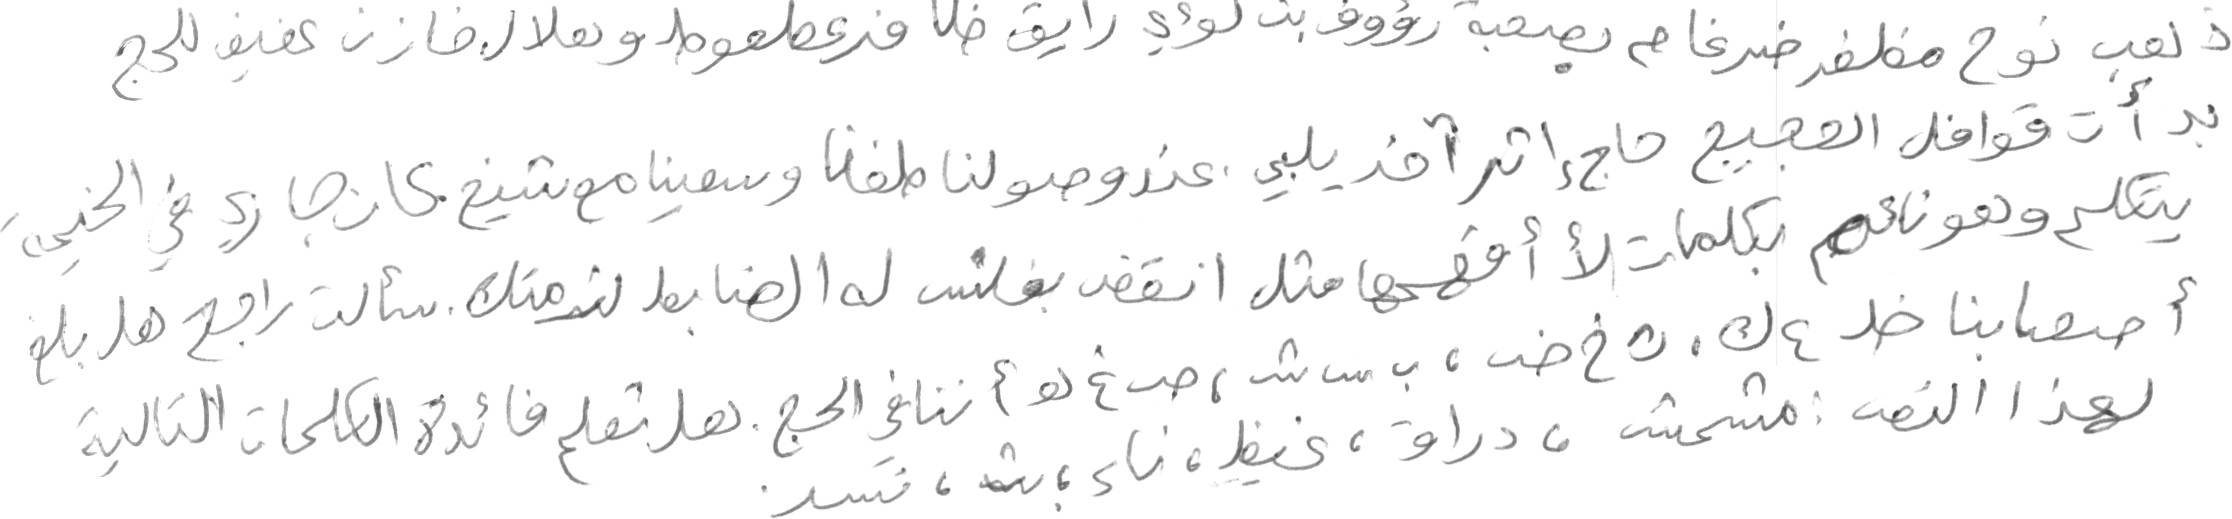 ذهب نوح مظفر ضرغام بصحبة رؤوف بن لؤي رايق ظافر عطعوط وهلال خازن عفيف للحج
بدأت قوافل الحجيج حاج إثر آخر يلبي. عند وصولنا طفنا وسعينا مع شيخ. كان جاري في الخيمة
يتكلم وهو نائم بكلمات لا أفهمها مثل انقض بفلتس له الضابط لخدمتك. سألت راجح هل بلغ
أصحابنا خل ع ك، ث خ ض، ب س ش، ص غ هو أننا في الحج. هل تعلم فائدة الكلمات التالية
لهذا النص: مشمش، دراق، غيظ، ناء، بث، تسد.